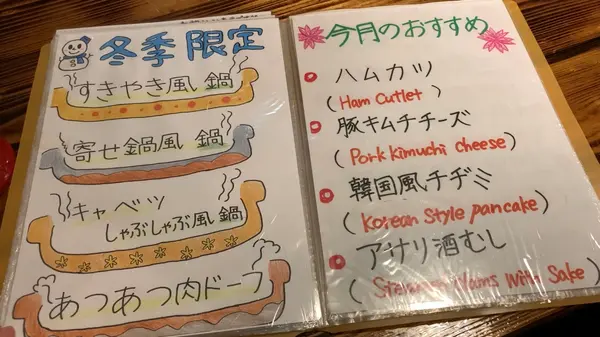 冬季限定
すきやき風鍋
寄せ鍋風鍋
キャベツ
しゃぶしゃぶ風鍋
あつあつ肉ドーフ
今月のおすすめ
ハムカツ
(Ham Cutlet)
豚キムチチーズ
(Pork kimuchi cheese)
韓国風チヂミ
(Korean Style pancake)
アサリ酒むし
with Sake)